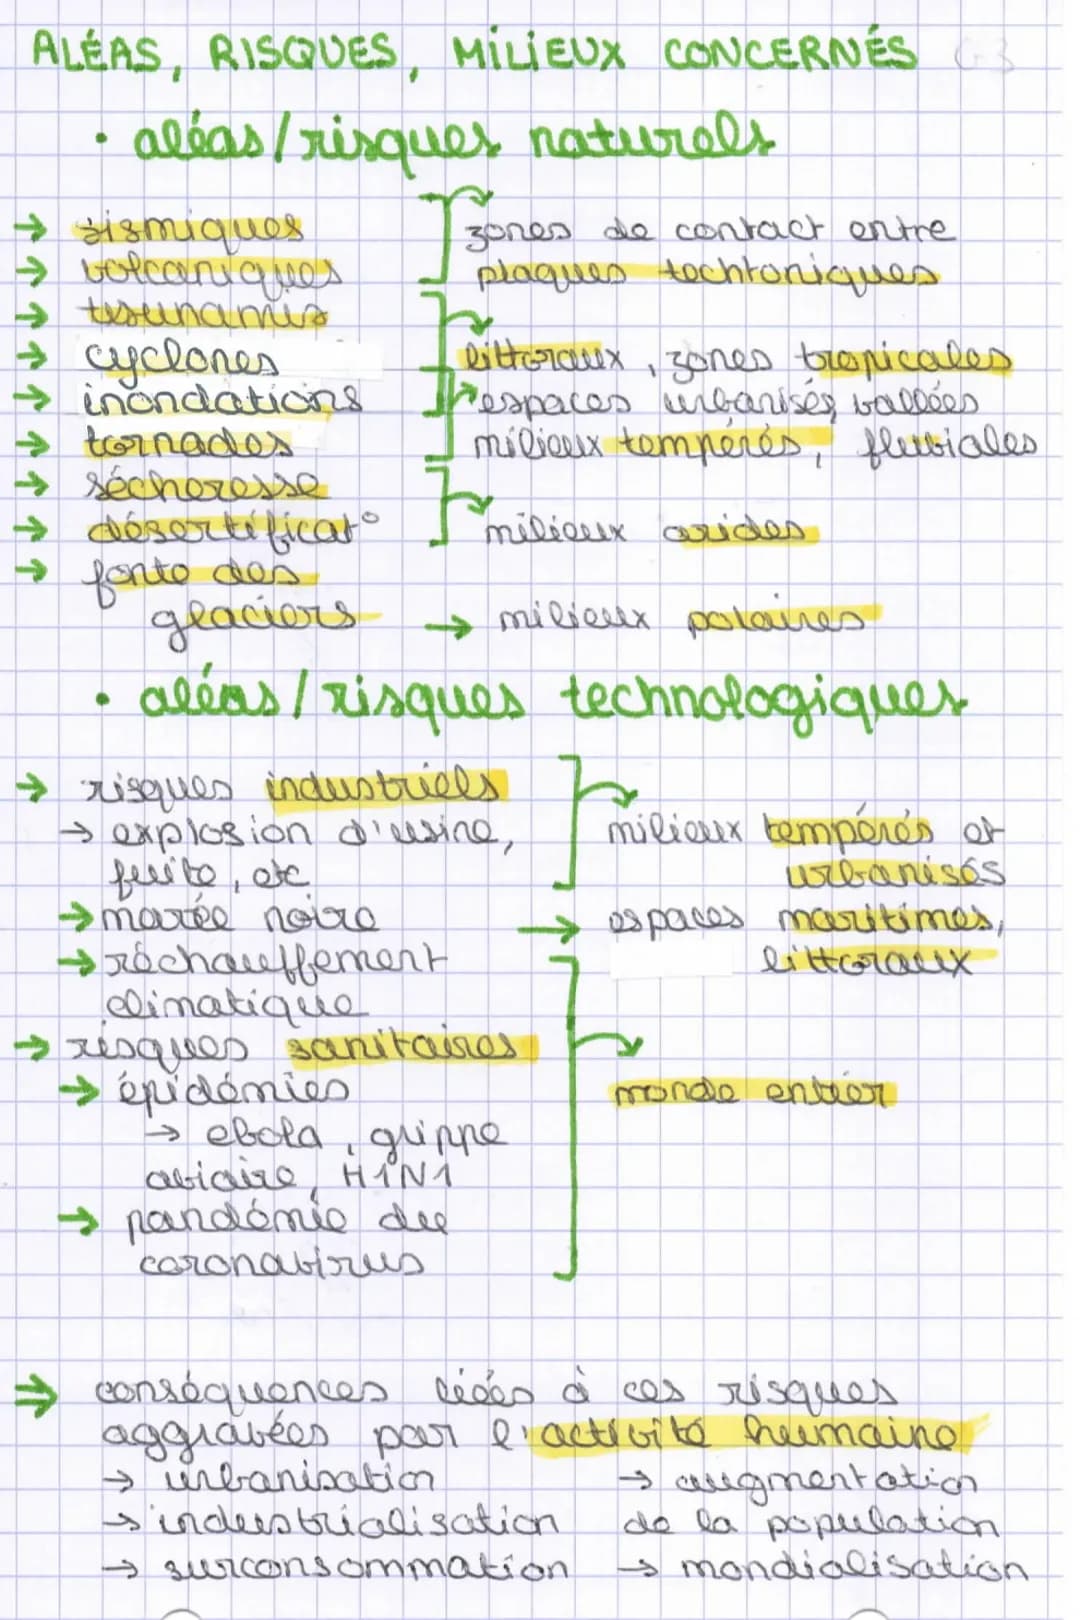 ALÉAS, RISQUES, MILIEUX CONCERNÉS G3
• aléas/risques naturels
→ sismiques
zones de contact entre
→ volcaniques
plaques techtoniques
→ tsunamis
→ cyclones
littoraux, zones tropicales
→ inondations
espaces urbanisés, vallées
→ tornades
milieux tempérés, fluviales
→ sécheresse
→ désertificat°
milieux arides
→ fonte des
glaciers → milieux polaires
• aléas/risques technologiques
→ risques industriels
→ explosion d'usine,
milieux tempérés et
fuite, etc
urbanisés
→ marée noire → espaces maritimes,
→ réchauffement
littoraux
climatique
→ risques sanitaires
→ épidémies
monde entier
→ ebola, grippe
aviaire, H1N1
→ pandémie du
coronavirus
⇒ conséquences liées à ces risques
aggravées par l'activité humaine
→ urbanisation → augmentation
→ industrialisation de la population
→ surconsommation → mondialisation